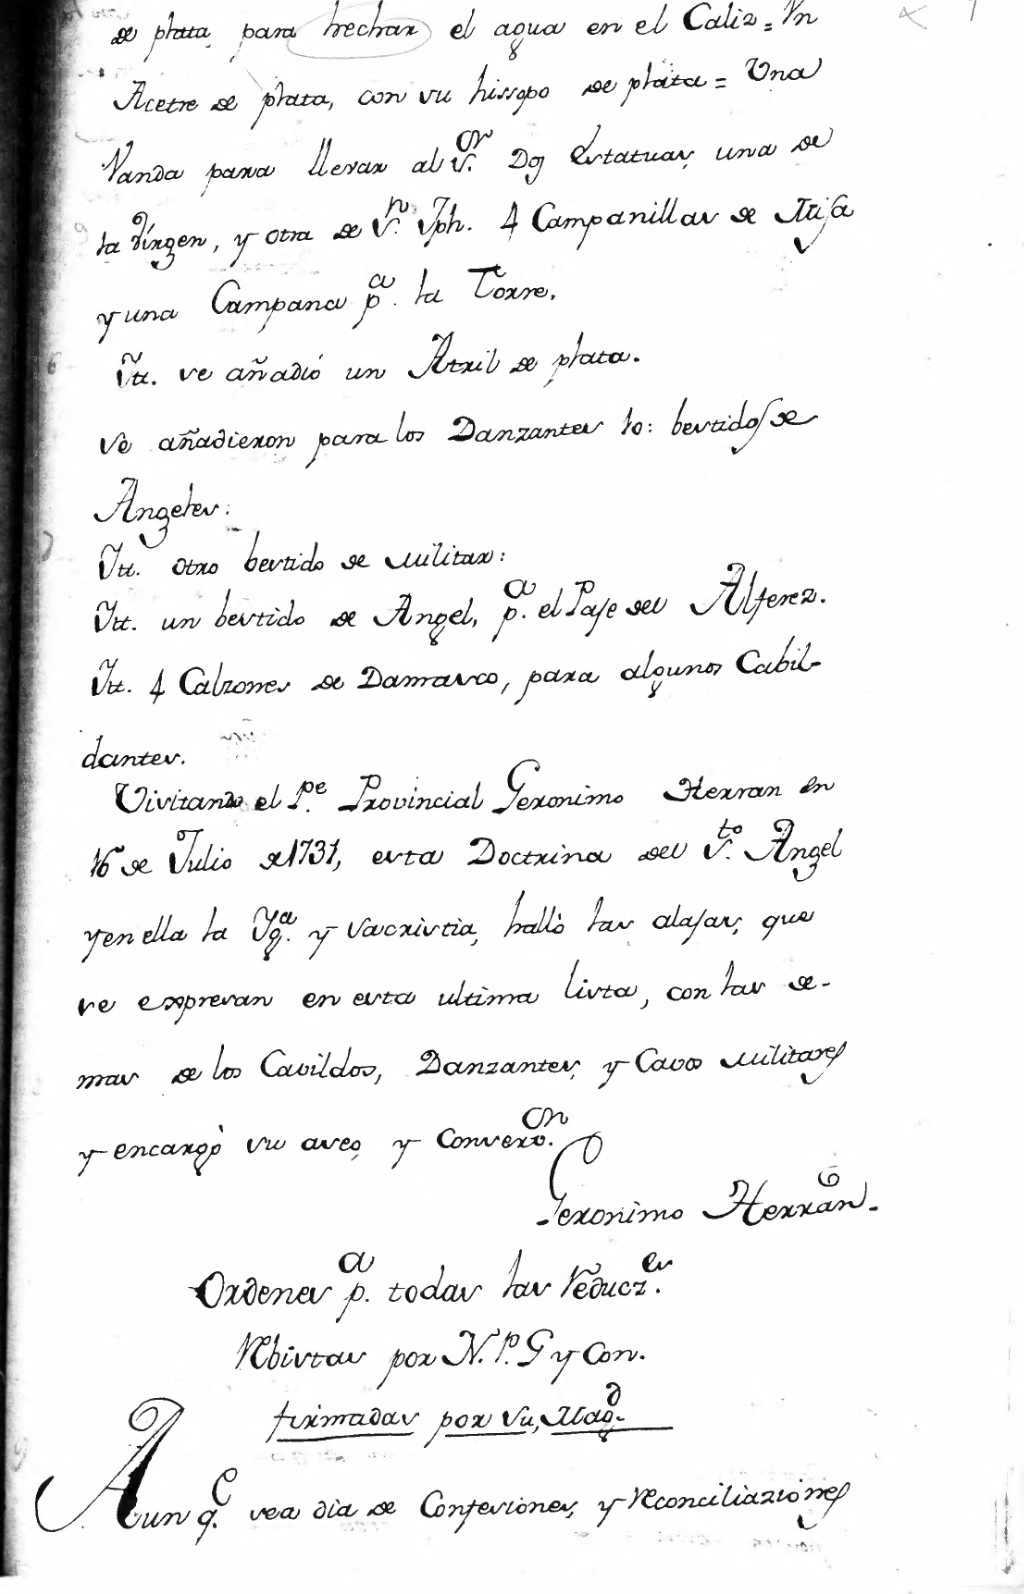 de plata para hechar el agua en el Caliz = Vn
Acetre de plata, con su hissopo de plata = Una
Vanda para llevar al S.or Dos Estatuas, una de
la Virgen, y otra de S.n Jph. 4 Campanillas de Missa
y una Campana p.a la Torre.
Itt. se añadió un Atril de plata.
se añadieron para los Danzantes 10: bestidos de
Angeles:
Itt. otro bestido de Militar:
Itt. un bestido de Angel, p.a el Paje del Alferez.
Itt. 4 Calzones de Damasco, para algunos Cabil-
dantes.
Visitando el P.e Provincial Geronimo Herran en
16 de Julio de 1731, esta Doctrina del S.to Angel
y en ella la Yg.a y Sacristia, halló las alajas, que
se expresan en esta ultima lista, con las de-
mas de los Cavildos, Danzantes, y Cavos Militares
y encargó su aseo, y Conserv.on
Geronimo Herrán.
Ordenes p.a todas las Reducz.es
Rebistas por N. P. G y Con.
firmadas por Su, Mag.d
Aunq.e sea dia de Confesiones, y reconciliaziones